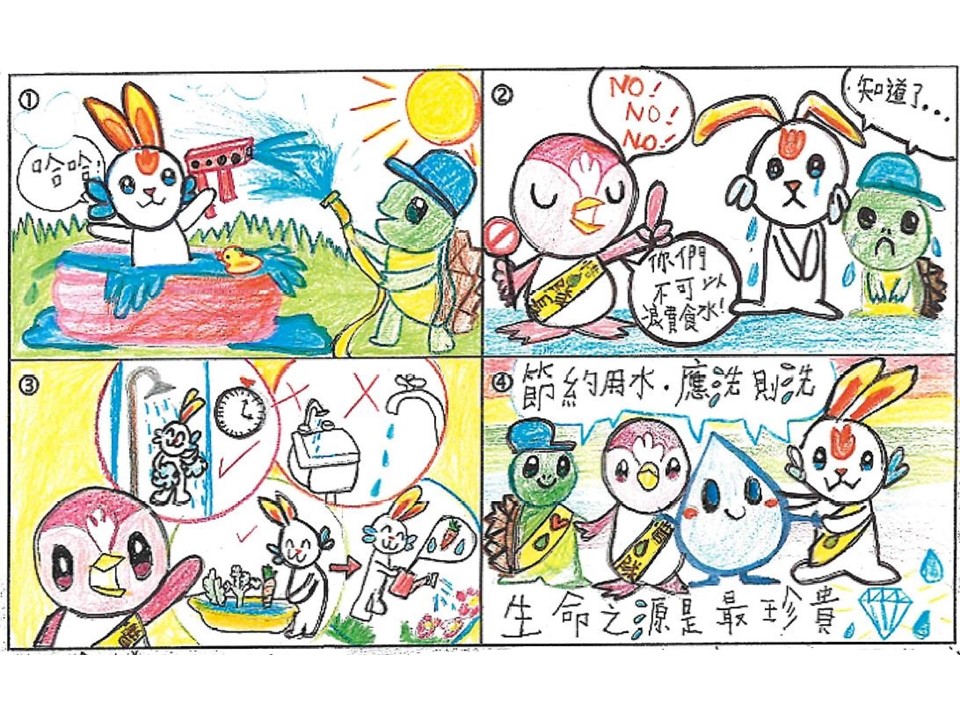 ①
哈哈!
②
NO!
NO!
NO!
知道了...
你們
不可以
浪費食水!
③
④
節約用水.應洗則洗
生命之源是最珍貴